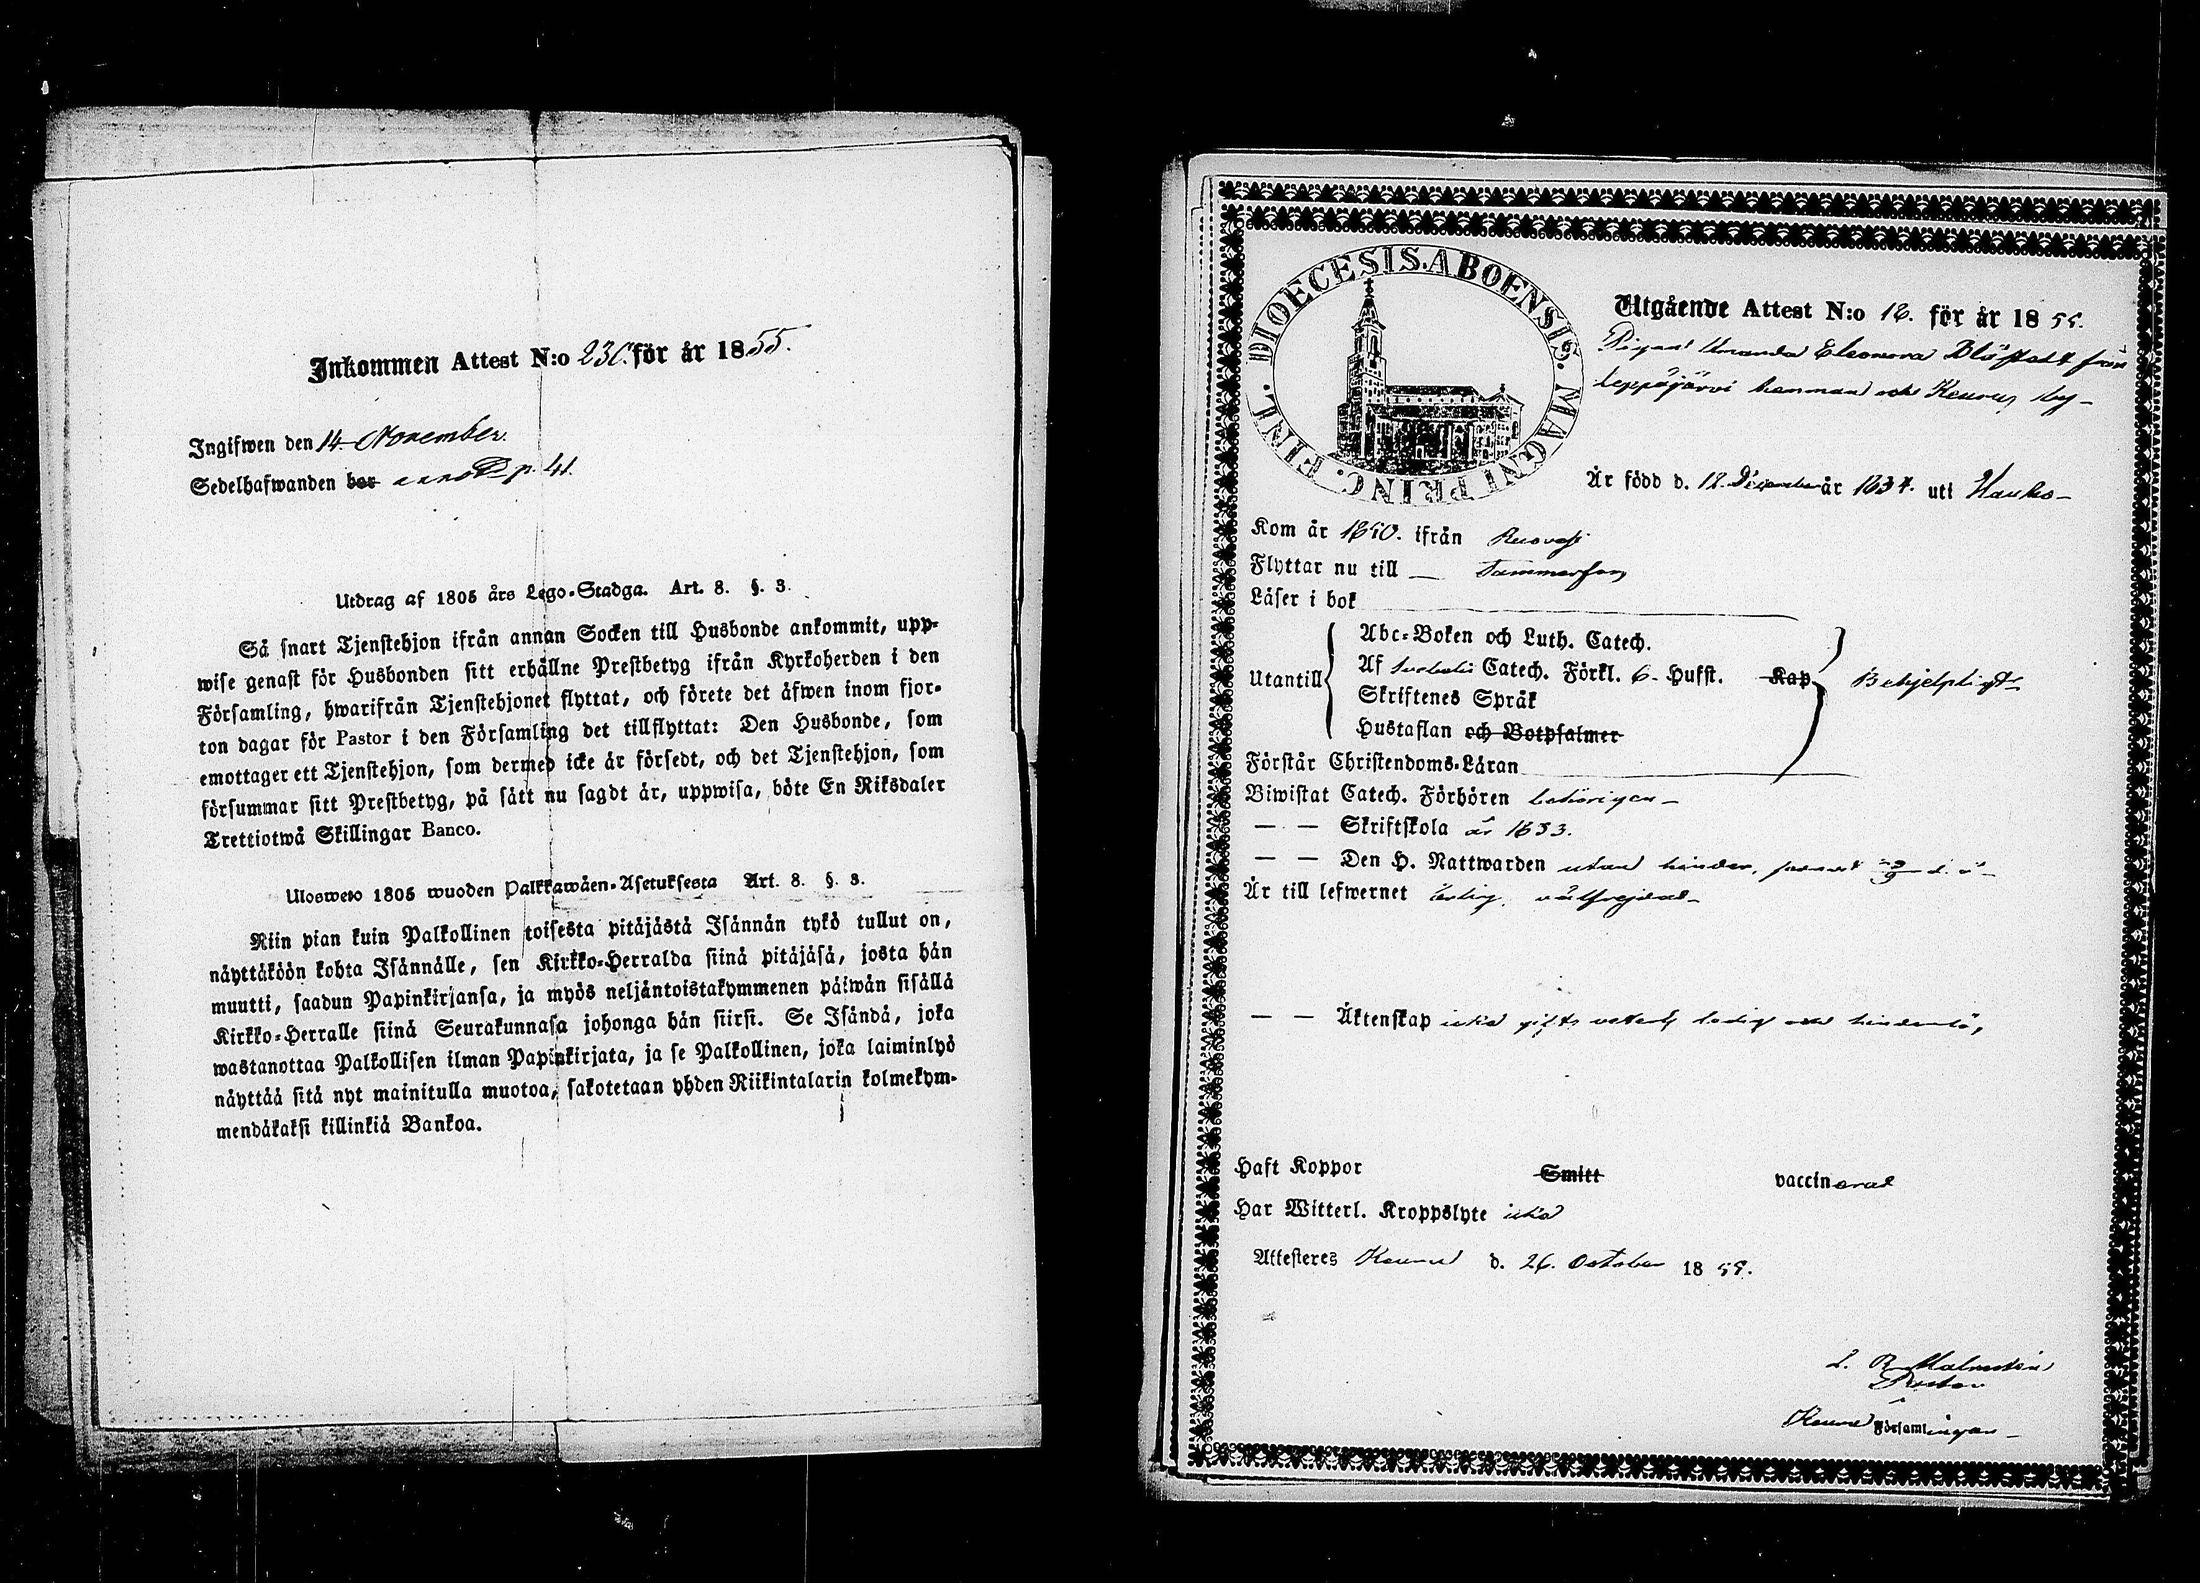 Inkommen Attest N:o 230. för år 1855.
Ingifwen den 14 November.
Sedelhafwanden bor anno p. 41.
Utdrag af 1805 års Lego-Stadga. Art. 8. §. 3.
Så snart Tjenstehjon ifrån annan Socken till Husbonde ankommit, upp-
wise genast för Husbonden sitt erhållne Prestbetyg ifrån Kyrkoherden i den
Församling, hwarifrån Tjenstehjonet flyttat, och förete det äfwen inom fjor-
ton dagar för Pastor i den Församling det tillflyttat: Den Husbonde, som
emottager ett Tjenstehjon, som dermed icke är försedt, och det Tjenstehjon, som
försummar sitt Prestbetyg, på sätt nu sagdt är, uppwisa, böte En Riksdaler
Trettiotwå Skillingar Banco.
Ulosweto 1805 wuoden Palkkawäen-Asetuksesta Art. 8. §. 3.
Niin pian kuin Palkollinen toisesta pitäjästä Isännän tykö tullut on,
näyttäköön kohta Isännälle, sen Kirkko-Herralda siinä pitäjäsä, josta hän
muutti, saadun Papinkirjansa, ja myös neljäntoistakymmenen päiwän sisällä
Kirkko-Herralle siinä Seurakunnasa johonga hän siirsi. Se Isändä, joka
wastanottaa Palkollisen ilman Papinkirjata, ja se Palkollinen, joka laiminlyö
näyttää sitä nyt mainitulla muotoa, sakotetaan yhden Riikintalarin kolmekym-
mendäkaksi killinkiä Bankoa.
DIOECESIS. ABOENSIS. MAGNI PRINC. FINL.
Utgående Attest N:o 16. för år 1855.
Pigan Amanda Eleonora Blåfjält från
Leppäjärvi hemman och Keuru by
Är född d. 12 December år 1834. uti Hauho
Kom år 1850. ifrån Ruovesi
Flyttar nu till Tammerfors
Läser i bok
Utantill
Abc-Boken och Luth. Catech.
Af Svebelii Catech. Förkl. 6 Hufst. Kap
Skriftenes Språk
Hustaflan och Botpsalmer
Behjelpligt
Förstår Christendoms-Läran
Biwistat Catech. Förhören behörigen
— — Skriftskola år 1853.
— — Den H. Nattwarden utan hinder, senast
Är till lefwernet ärlig, välfrejdad
— — Äktenskap icke gift, veterl. ledig och hinderlös
Haft Koppor Smitt vaccinerad
Har Witterl. Kroppslyte icke
Attesteres Keuru d. 26. October 1855.
Malmstén
Pastor
Keuru Församlingen